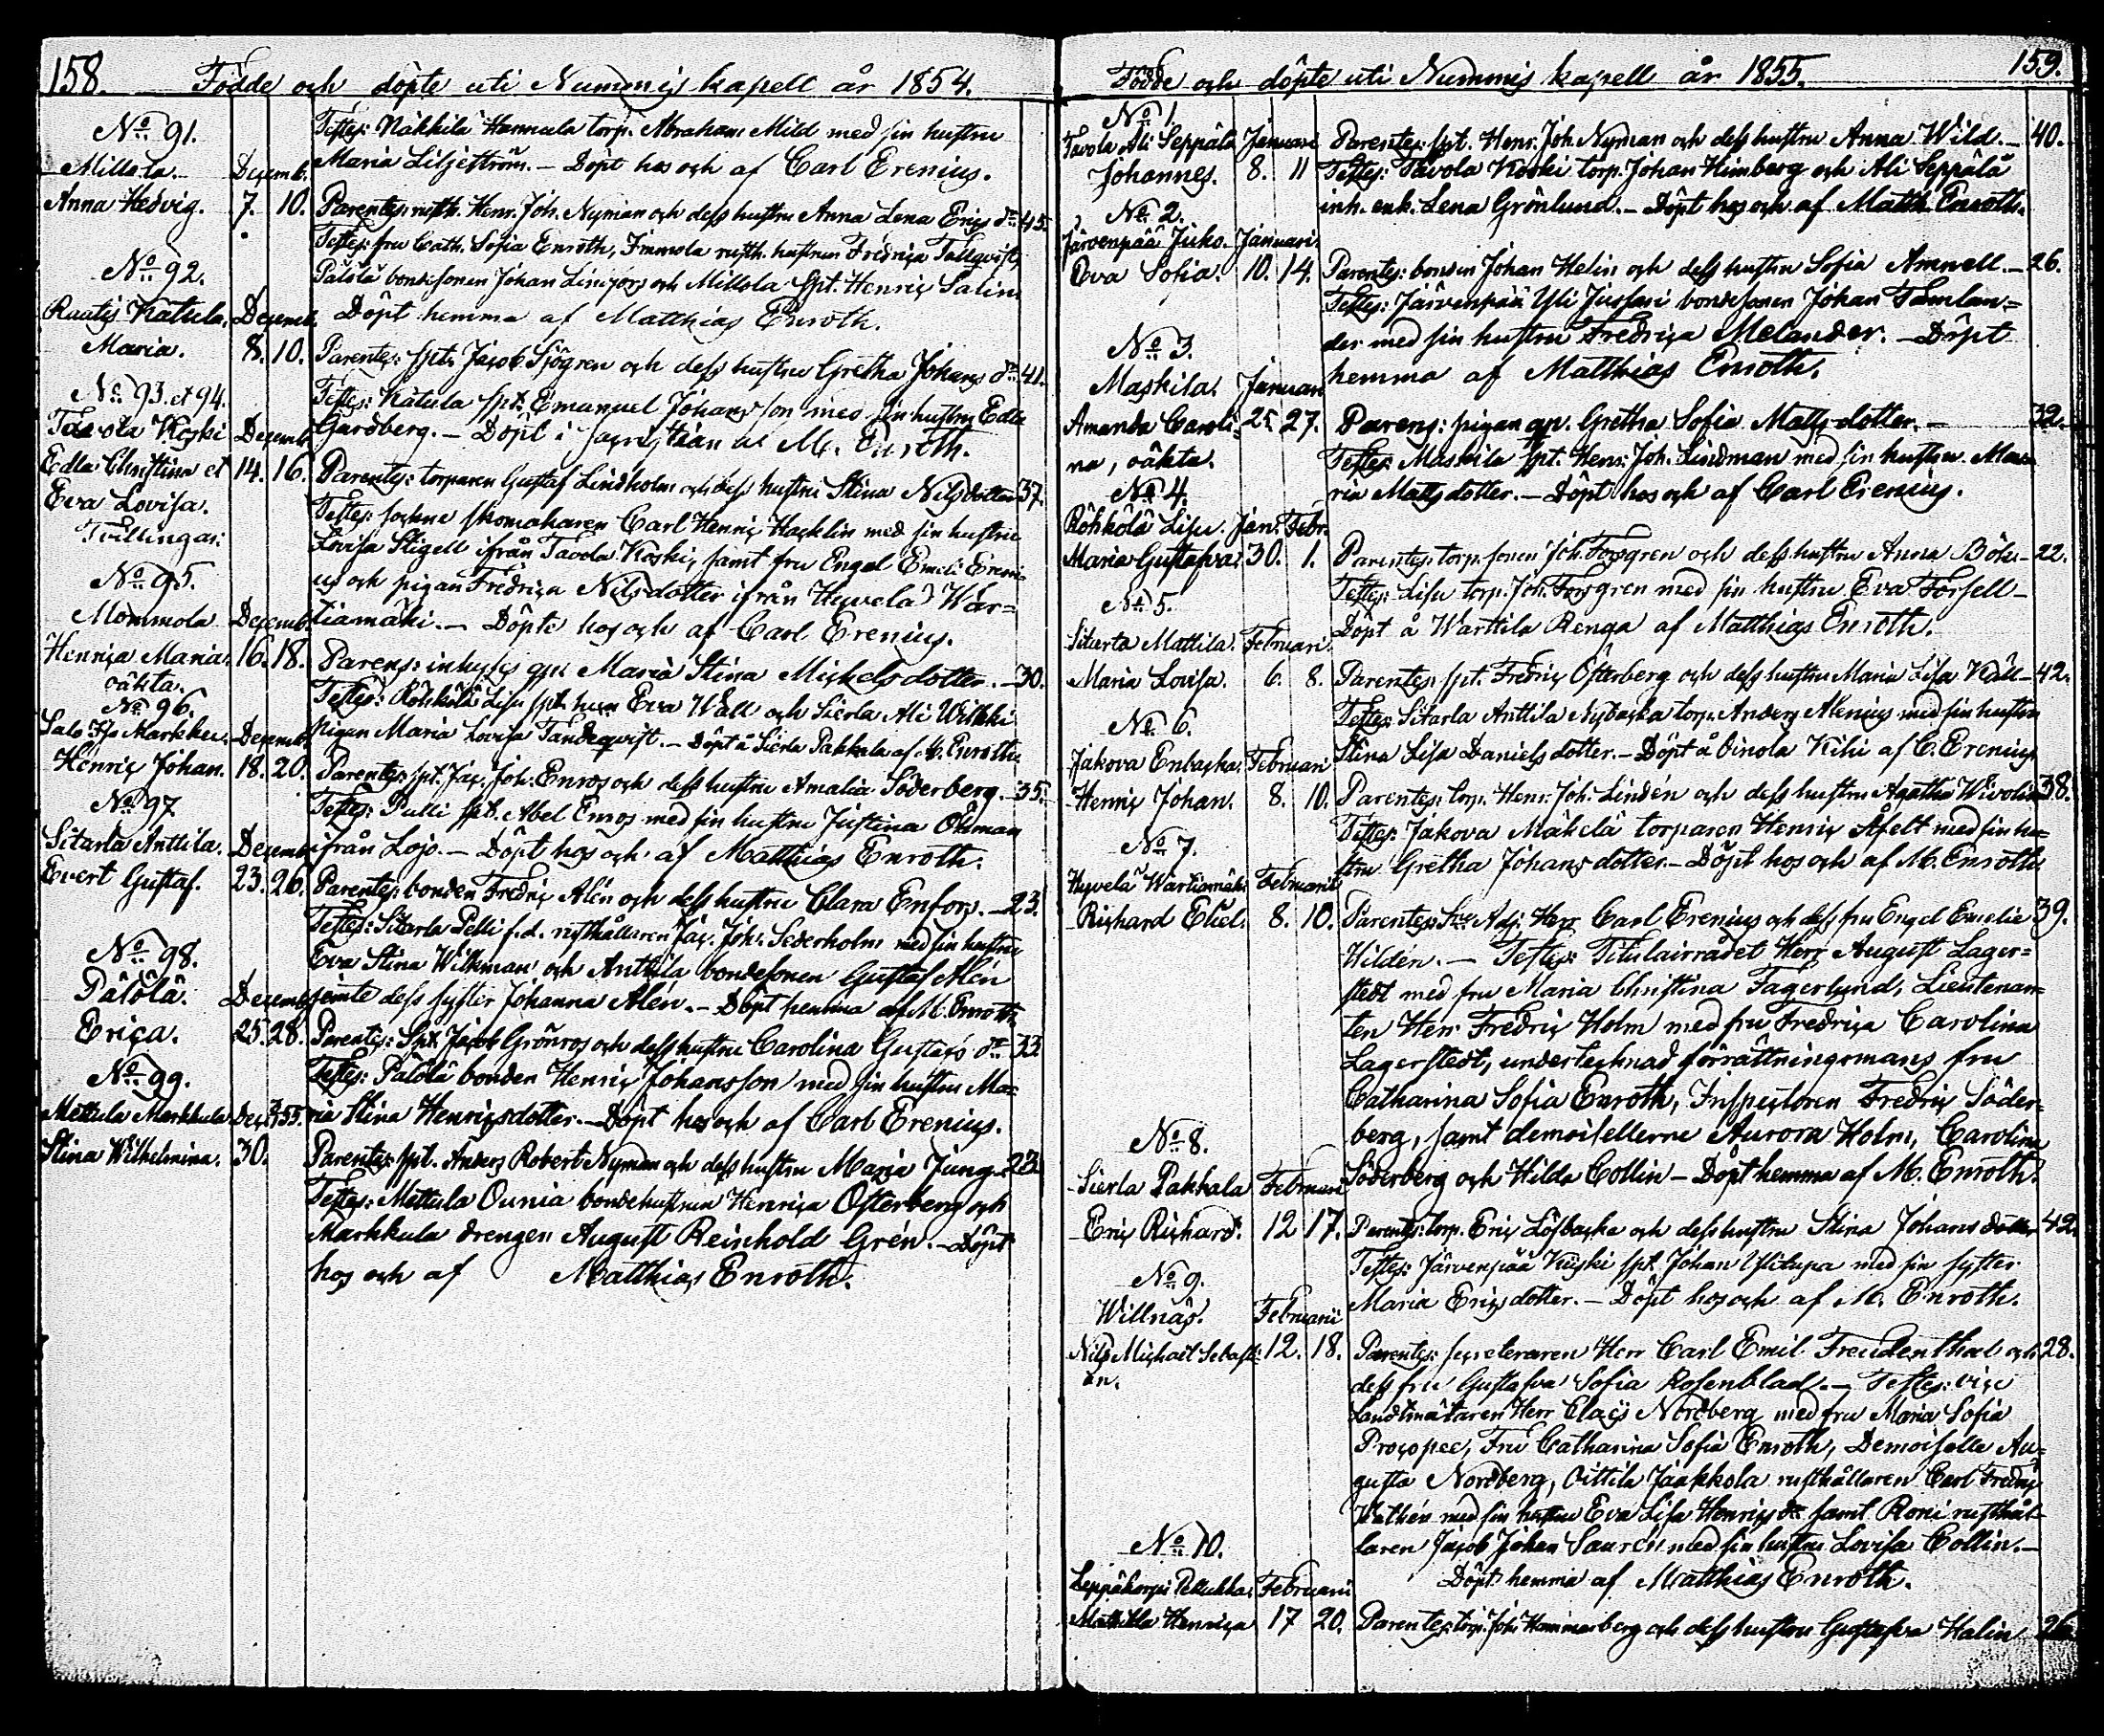 158. Födde och döpte uti Nummis kapell år 1854.
Testes: Näkkilä Hannula torp. Abraham Mild med sin hustru
Maria Liljeström. – Döpt hos och af Carl Erenius.
No 91.
Millola. Decemb.
Anna Hedvig. 7. 10. Parentes: rusth. Henr. Joh. Nyman och dess hustru Anna Lena Erics dr 45.
Testes: fru Cath. Sofia Enroth, Immola rusth. hustrun Fredrica Tallqvist,
Pälölä bondesonen Johan Linijors och Millola spt. Henric Salin.
Döpt hemma af Matthias Enroth.
No 92.
Raatis Katula. Decemb.
Maria. 8. 10. Parentes: spt. Jacob Sjögren och dess hustru Gretha Johans dr 41.
Testes: Katula spt. Emanuel Johansson med sin hustru Edla
Gardberg. – Döpt i sacristian af M. Enroth.
No 93 et 94.
Tavola Koski Decemb.
Edla Christina et 14. 16. Parentes: torparen Gustaf Lindholm och dess hustru Stina Nilsdotter 37.
Eva Lovisa.
Tvillingar.
Testes: sockne skomakaren Carl Henric Hacklin med sin hustru
Lovisa Stigell ifrån Tavola Koski, samt fru Engel Emeli Ereni-
us och pigan Fredrica Nilsdotter ifrån Hyvelä War=
tiamäki. – Döpte hos och af Carl Erenius.
No 95.
Mommola Decemb.
Henrica Maria. 16. 18. Parens: inhyses qv. Maria Stina Mickelsdotter. – 30.
oäkta.
Testes: Röhkölä Lisu spt. Eva Wall och Sierla Ali Wilkki
pigan Maria Lovisa Tandeqvist. – Döpt å Sierla Pakkala af M. Enroth.
No 96.
Decemb.
Henric Johan. 18. 20. Parentes: spt. Jac. Joh. Enros och dess hustru Amalia Söderberg. – 35.
Testes: Pulli spt. Abel Enros med sin hustru Justina Öhman
ifrån Lojo. – Döpt hos och af Matthias Enroth.
No 97
Sitarla Anttila. Decemb.
Evert Gustaf. 23. 26. Parentes: bonden Fredric Alén och dess hustru Clara Enfors. – 23.
Testes: Sitarla Pelli f.d. rusthållaren Jac. Joh. Sederholm med sin hustru
Eva Stina Wikman och Anttila bondesonen Gustaf Alén
jemte dess syster Johanna Alén. – Döpt hemma af M. Enroth.
No 98.
Pälölä. Decemb.
Erica. 25. 28. Parentes: Spt. Jacob Grönros och dess hustru Carolina Gustafs dr 33.
Testes: Pälölä bonden Henric Johansson med sin hustru Ma-
ria Stina Henricsdotter. – Döpt hos och af Carl Erenius.
No 99.
Mettula Markkula Dec.
Stina Wilhelmina. 30. Parentes: spt. Anders Robert Nyman och dess hustru Maria Jung. 23.
Testes: Mettula Ounia bondehustrun Henrica Österberg och
Markkula drengen August Reinhold Grén. – Döpt
hos och af Matthias Enroth.
Födde och döpte uti Nummis kapell år 1855. 159.
No 1.
Tavola Ali Seppälä Januari Parentes: spt. Henr. Joh. Nyman och dess hustru Anna Wild. – 40.
Johannes. 8. 11 Testes: Tavola Koski torp. Johan Himberg och Ali Seppälä
inh. enk. Lena Grönlund. – Döpt hos och af Matth. Enroth.
No 2.
Järvenpää Juko. Januari.
Eva Sofia. 10. 14. Parentes: bonden Johan Helin och dess hustru Sofia Amnell. – 26.
Testes: Järvenpää Yli Jussari bondesonen Johan Tamlan=
der med sin hustru Fredrica Melander. – Döpt
hemma af Matthias Enroth.
No 3.
Maskila. Januari
Amanda Caroli= 25. 27. Parens: pigan qv. Gretha Sofia Mattsdotter. – 32.
na, oäkta. Testes: Maskila spt. Henr. Joh. Lindman med sin hustru Ma-
ria Mattsdotter. – Döpt hos och af Carl Erenius.
No 4.
Röhkölä Lisu. Jan. Febr.
Maria Gustafva. 30. 1. Parentes: torp. sonen Joh. Forsgren och dess hustru Anna Böhr – 22.
Testes: Lisu torp. Joh. Forsgren med sin hustru Eva Forsell –
Döpt å Warttila Renga af Matthias Enroth.
No 5.
Sitarla Mattila. Februari.
Maria Lovisa. 6. 8. Parentes: spt. Fredric Österberg och dess hustru Maria Lisa Käll – 42.
Testes: Sitarla Anttila Nybacka torp. Anders Alenius med sin hustru
Stina Lisa Danielsdotter. – Döpt å Oinola Kihi af C. Erenius.
No 6.
Jakova Enbacka. Februari
Henric Johan. 8. 10. Parentes: torp. Henr. Joh. Lindén och dess hustru Agatha Wivolin 38.
Testes: Jakova Mäkelä torparen Henric Åfelt med sin hu=
stru Gretha Johansdotter. – Döpt hos och af M. Enroth.
No 7.
Hyvelä Wartiamäki Februarii
Richard Eliel. 8. 10. Parentes: Adj. Herr Carl Erenius och dess fru Engel Emelie 39.
Wildén. – Testes: Titulairrådet Herr August Lager=
stedt med fru Maria Christina Fagerlund, Lieutenan=
ten Herr Fredric Holm med fru Fredrica Carolina
Lagerstedt, undertecknad förrättningsmans fru
Catharina Sofia Enroth, Inspectoren Fredric Söder=
berg, samt demoisellerne Aurora Holm, Carolina
Söderberg och Hilda Collin – Döpt hemma af M. Enroth.
No 8.
Sierla Pakkala Februari
Eric Richard. 12 17. Parentes: torp. Eric Löfbacka och dess hustru Stina Johansdotter 42.
Testes: Järvenpää Kuski spt. Johan Ylitupa med sin syster
Maria Ericsdotter. – Döpt hos och af M. Enroth.
No 9.
Willnäs. Februarii
Nils Michael Sebasti= 12. 18. Parentes: secreteraren Herr Carl Emil Freudenthal och 28.
an. dess fru Gustafva Sofia Rosenblad. – Testes: vice
Landtmätaren Herr Claës Nordberg med fru Maria Sofia
Procopee, Fru Catharina Sofia Enroth, Demoiselle Au=
gusta Nordberg, Oittila Jaakkola rusthållaren Carl Fredric
Wathén med sin hustru Eva Lisa Henrics dr samt Roni rusthål=
laren Jacob Johan Saurén med sin hustru Lovisa Collin. –
Döpt hemma af Matthias Enroth.
No 10.
Leppäkorpi Pellukka. Februarii
Mathilda Henrica 17 20. Parentes: torp. Joh. Hammarberg och dess hustru Gustafva Halin 26.